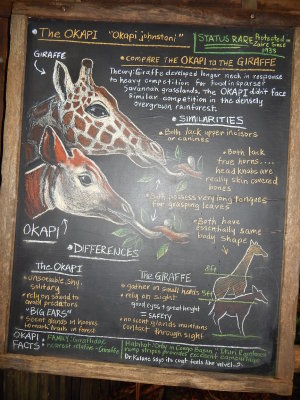 • The OKAPI "Okapi johnstoni"
STATUS RARE Protected in Zaire Since 1933
• COMPARE THE OKAPI TO THE GIRAFFE
GIRAFFE
Theory: Giraffe developed longer neck in response
to heavy competition for food in sparse
savannah grasslands, The OKAPI didn't face
similar competition in the densely
overgrown rainforest.
• SIMILARITIES
• Both lack upper incisors
or canines
• Both lack
true horns....
head knobs are
really skin covered
bones
• Both possess very long tongues
for grasping leaves
• Both have
essentially same
body shape
OKAPI
• DIFFERENCES
The OKAPI
• unsociable, shy,
solitary
• rely on sound to
avoid predators
"BIG EARS"
• scent glands in hooves
to mark trails in forest
The GIRAFFE
• gather in small herds
• rely on sight
good eyes + great height
= SAFETY
• no scent glands maintains
contact through sight
OKAPI FACTS
• FAMILY: Giraffidae
• nearest relative - Giraffe
Habitat: Only in Congo Basin - Ituri Rainforest
rump stripes provide excellent camouflage
says its coat feels like velvet